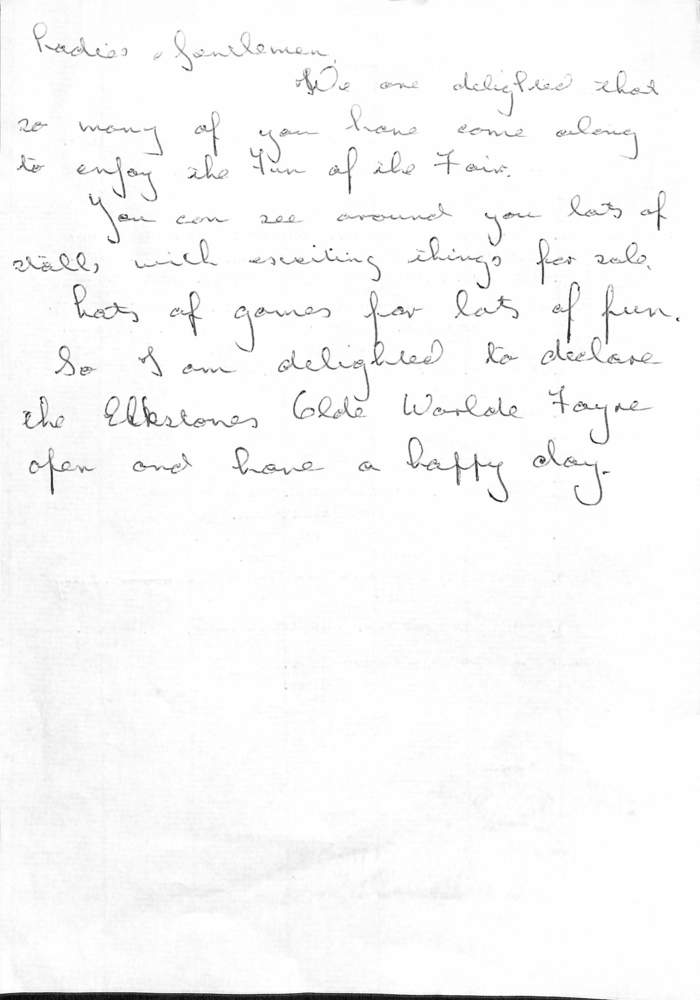 Ladies & Gentlemen,
We are delighted that
so many of you have come along
to enjoy the Fun of the Fair.
You can see around you lots of
stalls with exciting things for sale.
Lots of games for lots of fun.
So I am delighted to declare
the Elkstones Olde Worlde Fayre
open and have a happy day.